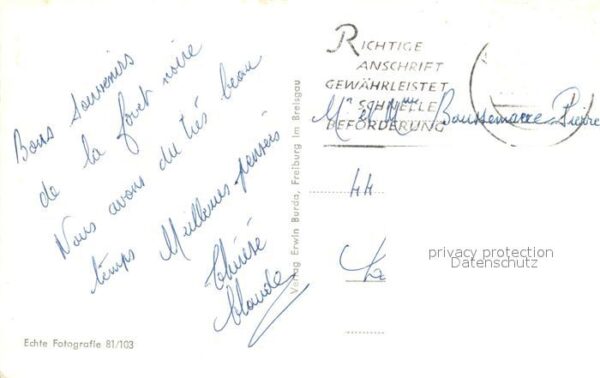 Bons Souvenirs
de la forêt noire
Nous avons du très beau
temps Meilleures pensées
Thérèse
Claude
Echte Fotografie 81/103
Verlag Erwin Burda, Freiburg im Breisgau
RICHTIGE
ANSCHRIFT
GEWÄHRLEISTET
SCHNELLE
BEFÖRDERUNG
Mr et Mme Boussemarre Pierre
44
La
privacy protection
Datenschutz